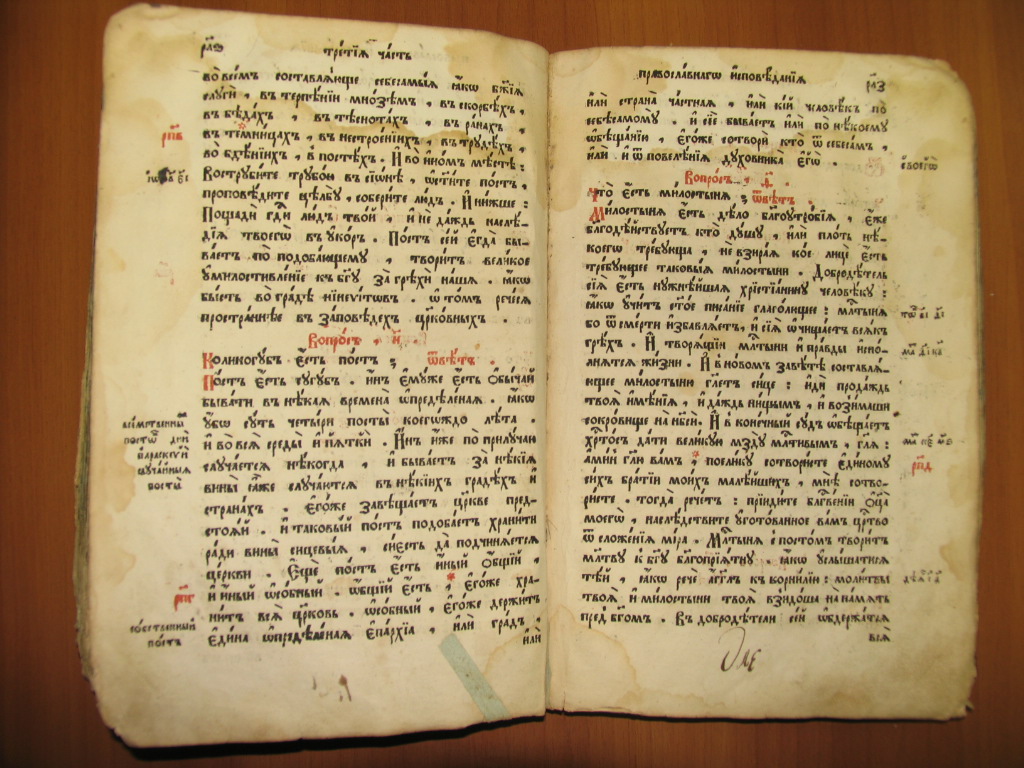 рл҃ѕ
третїѧ часть
во всѣмъ составлѧюще себе самыѧ ꙗкѡ бж҃їѧ
слуги , въ терпѣнїи мнозѣмъ , въ скорбѣхъ ,
въ бѣдахъ , въ тѣснотахъ , въ ранахъ ,
рп҃в
въ темницахъ , въ нестроенїихъ , въ трудѣхъ ,
во бдѣнїихъ , в постѣхъ . И во иномъ мѣстѣ :
Вострубите трубою въ сїѡнѣ , ѡст҃ите постъ ,
проповѣдите цѣлбу , соберите люди . И нижше :
Пощади гдⷭ҇и люди твоѧ , и не даждь наслѣ-
дїѧ твоегѡ въ укоръ . Постъ сей егда бы-
ваетъ по подобающему , творитъ великое
умилостивленїе къ бг҃у за грѣхи нашѧ . ꙗкѡ
бысть во градѣ нїневїтѡвъ . ѡ томъ речесѧ
пространнѣе въ заповѣдехъ цр҃ковныхъ .
Вопросъ , и҃ .
Колико губъ есть постъ ; ѿвѣтъ .
Постъ есть сугубъ . инъ емуже есть ѻбычай
бывати въ нѣкаѧ времена ѡпредѣленаѧ . ꙗкѡ
убѡ суть четыри посты коегѡждо лѣта .
и во всѧ среды и пѧтки . Инъ иже по прилучаю
случаетсѧ нѣкогда , и бываетъ за нѣкїѧ
вины ꙗже случаютсѧ въ нѣкїихъ градѣхъ и
странахъ . Егоже завѣщаетъ церкве пред-
стоѧй . и таковый постъ подобаетъ хранити
ради вины сицевыѧ , сиесть да подчинѧетсѧ
церкви . Еще постъ есть иный ѻбщїй ,
рп҃г
и иный ѡсобный . ѡбщїй есть , егоже хра-
нитъ всѧ церковь . ѡсобный , егоже держитъ
собственный
постъ
едина ѡпредѣленаѧ епархїа , или градъ ,
или
православнагѡ исповѣданїѧ
рл҃з
или страна частнаѧ , или кїй человѣкъ по
себѣ самому . и сїе бываетъ или по нѣкоему
ѡбѣщанїю , егоже сотвори кто ѿ себѣ самъ ,
или и ѿ повелѣнїѧ духовника егѡ .
своегѡ
Вопросъ , ѳ҃ .
Что есть милостынѧ ; ѿвѣтъ .
Милостынѧ есть дѣло благоутробїѧ , еже
благодѣйствуетъ кто душу , или плоть нѣ-
коегѡ требующа , не взираѧ кое лице есть
требующее таковыѧ милостыни . Добродѣтель
сїѧ есть нужнѣйшаѧ хрїстїанину человѣку :
ꙗкѡ учитъ ст҃ое писанїе глаголющее : млⷭ҇тынѧ
бо ѿ смерти избавлѧетъ , и сїѧ ѡчищаетъ всѧкъ
грѣхъ . И творѧщїи млⷭ҇тыни и правды испо-
лнѧтсѧ жизни . И в новомъ завѣтѣ составлѧ-
ющее милостыню гл҃етъ сице : иди продаждь
твоѧ имѣнїѧ , и даждь нищымъ , и возимаши
сокровище на нб҃си . И в конечный судъ ѡбѣщаетъ
хрⷭ҇тосъ дати великую мзду млⷭ҇тивымъ , гл҃ѧ :
рп҃д
аминь гл҃ю вамъ , понеже сотвористе единому
сихъ братїи моихъ малѣйшихъ , мнѣ сотво-
ристе . тогда речетъ : прїидите благвенїи ѻц҃а
моегѡ , наслѣдствуйте уготованное вамъ црⷭ҇тво
ѿ сложенїѧ мїра . Млⷭ҇тынѧ с постомъ творитъ
млт҃ву к бг҃у благопрїѧтну . ꙗкѡ услышатисѧ
тѣй , ꙗкѡ рече агг҃лъ къ корнилїю : молитвы
твоѧ и милостыни твоѧ взыдоша на памѧть
пред бг҃омъ . Въ добродѣтели сей ѡбдержатсѧ
всѧ